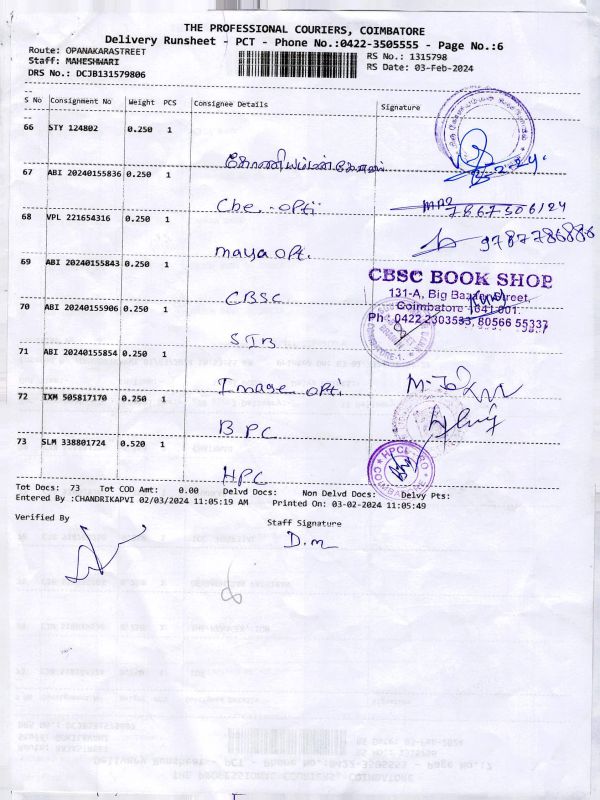 THE PROFESSIONAL COURIERS, COIMBATORE
Delivery Runsheet - PCT - Phone No.:0422-3505555 - Page No.:6
Route: OPANAKARASTREET
RS No.: 1315798
Staff: MAHESHWARI
RS Date: 03-Feb-2024
DRS No.: DCJB131579806
S No Consignment No Weight PCS Consignee Details Signature
66 STY 124802 0.250 1
67 ABI 20240155836 0.250 1
Che.. opti
7867506124
68 VPL 221654316 0.250 1
9787786886
maya opt.
69 ABI 20240155843 0.250 1
CBSC BOOK SHOP
131-A, Big Bazaar Street,
CBSC
Coimbatore - 641 001.
70 ABI 20240155906 0.250 1
Ph : 0422 2303533, 80566 55337
SIB
71 ABI 20240155854 0.250 1
Image opti
72 IXM 505817170 0.250 1
BPC
73 SLM 338801724 0.520 1
HPC
Tot Docs: 73 Tot COD Amt: 0.00 Delvd Docs: Non Delvd Docs: Delvy Pts:
Entered By :CHANDRIKAPVI 02/03/2024 11:05:19 AM Printed On: 03-02-2024 11:05:49
Verified By
Staff Signature
D.m